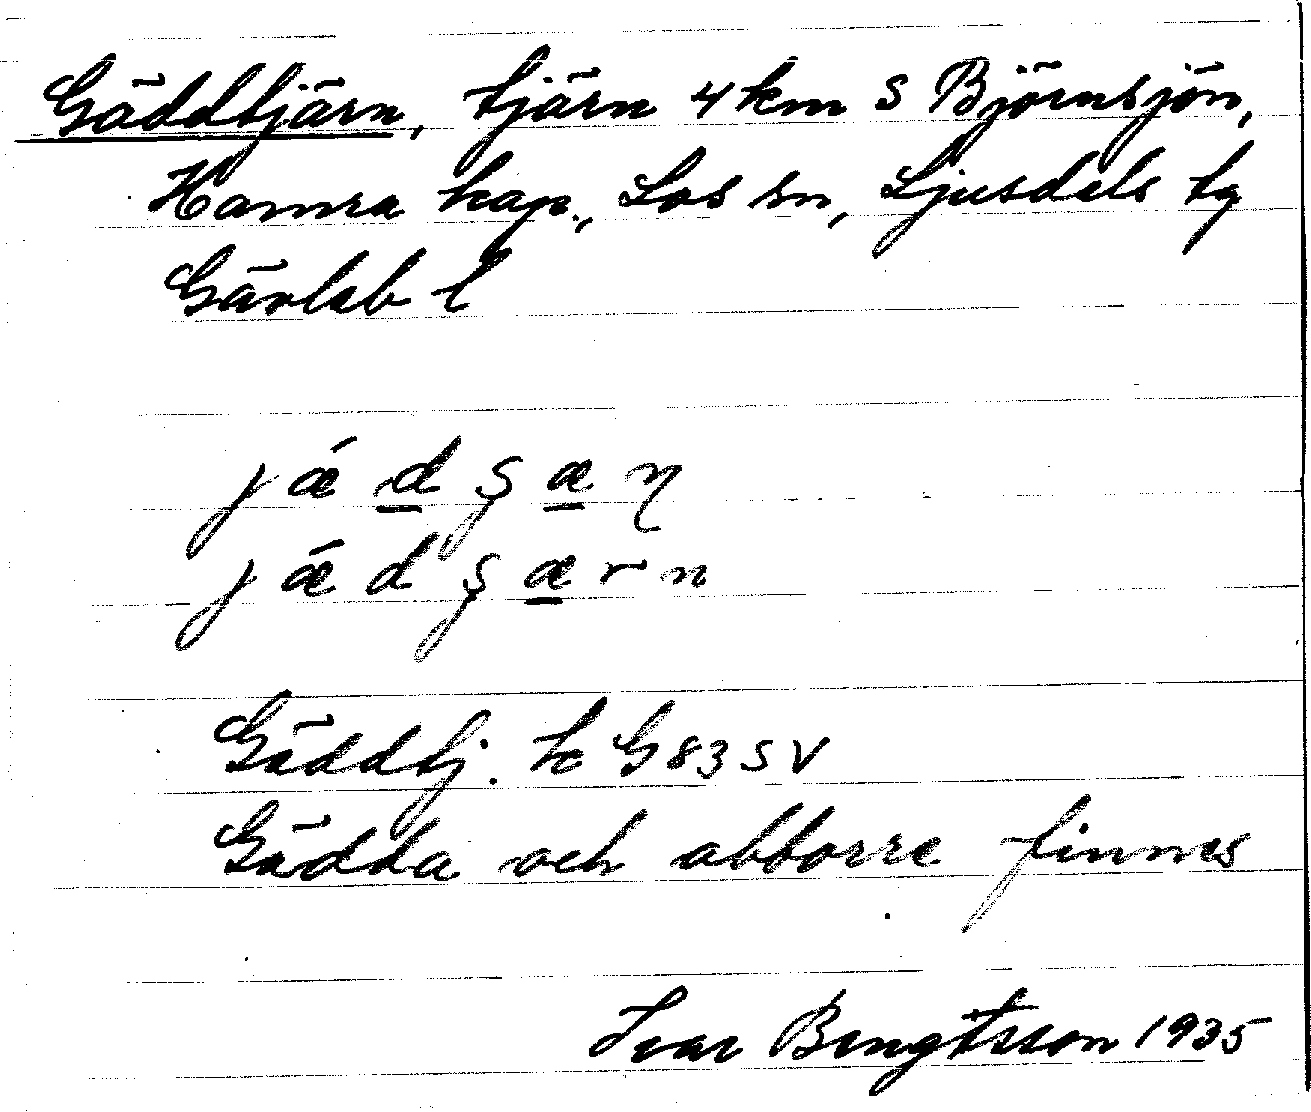 Gäddtjärn, tjärn 4 km S Björnsjön,
Hamra kap., Los sn, Ljusdels tg
Gävleb l
j ǽ d ş æ ņ
j ǽ d ş æ r n
Gäddtj. k G 83 S V
Gädda och abborre finnes
Ivar Bengtsson 1935